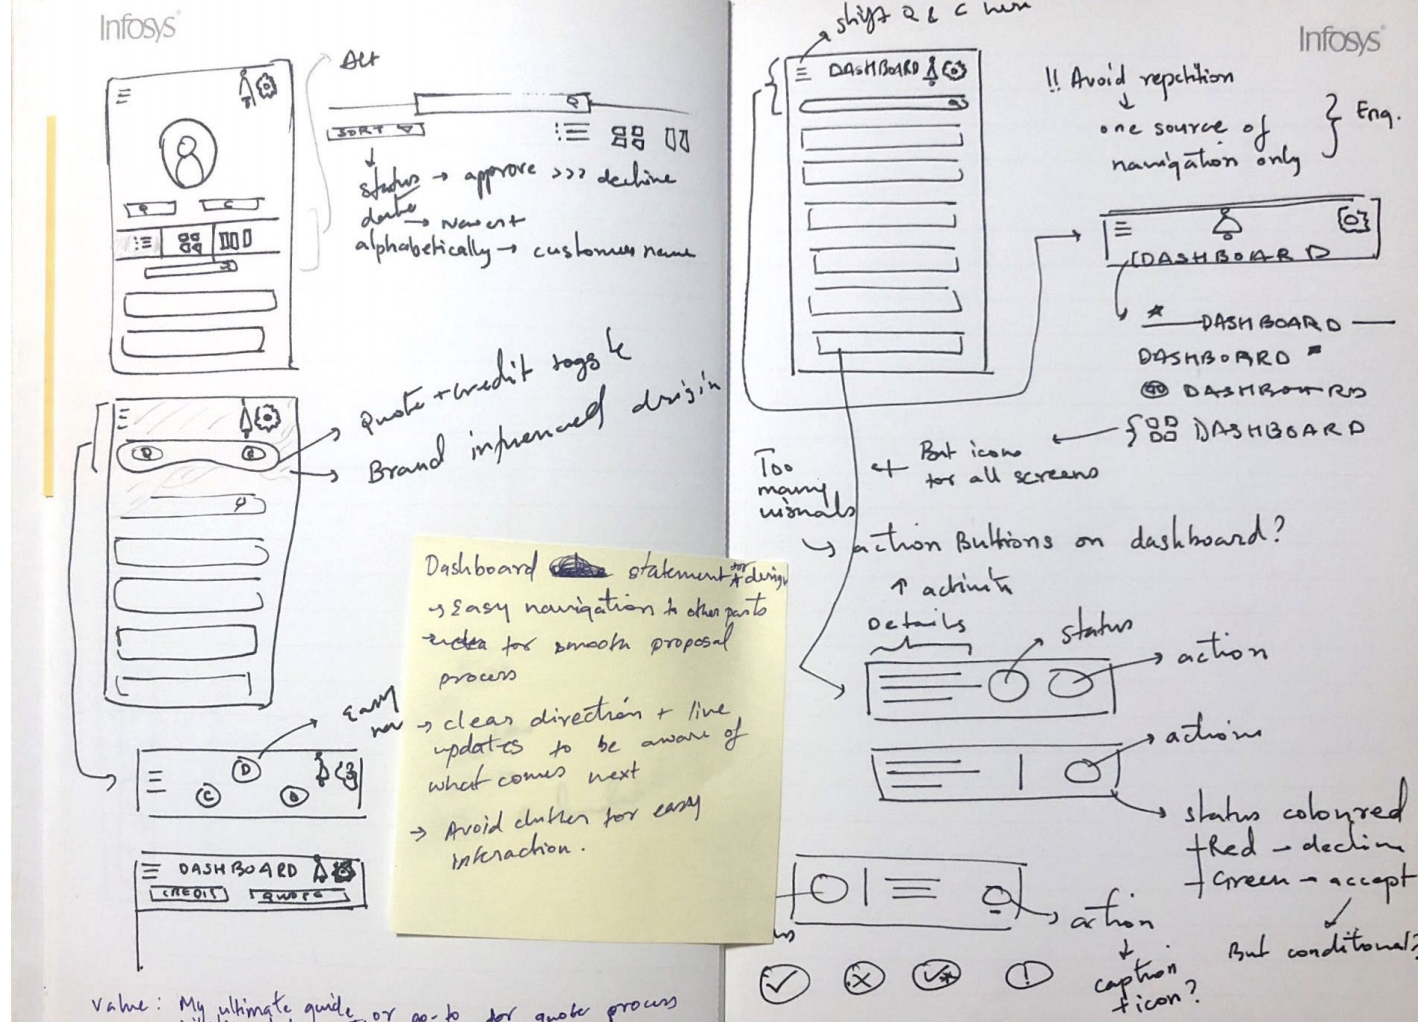 Infosys
Alt
Q
SORT
status → approve >>> decline
date → newest
alphabetically → customer name
Q C
Quote + credit toggle
Brand influenced design
Q C
Easy
nav
D
C Q
DASHBOARD
CREDIT QUOTE
Dashboard statement for design
→ Easy navigation to other parts
for smooth proposal
process
→ clear direction + live
updates to be aware of
what comes next
→ Avoid clutter for easy
interaction.
value: My ultimate guide or go-to for quote process
shift Q & C here
Infosys
DASHBOARD
!! Avoid repetition
↓
one source of
navigation only
} Enq.
DASHBOARD
* — DASHBOARD —
DASHBOARD *
DASHBOARD
{ DASHBOARD
But icons
for all screens
Too
many
visuals
→ action Buttons on dashboard?
↑ activity
Details
status
action
actions
status coloured
+ Red → decline
+ Green → accept
But conditional?
action
↓
caption
+ icon?